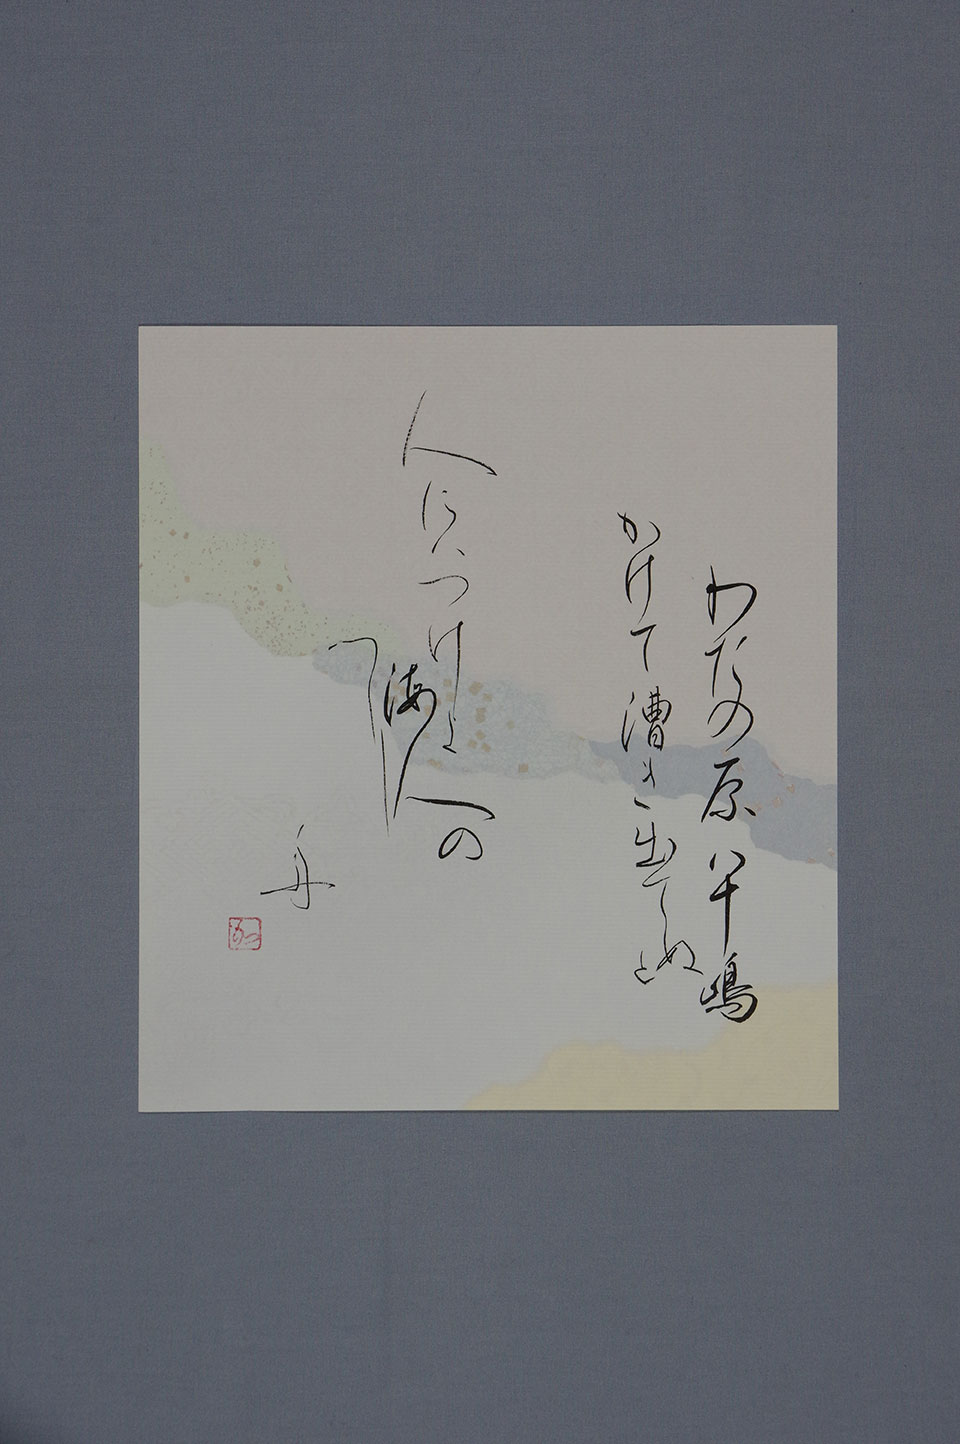 わたの原八十嶋
かけて漕き出てぬと
人にハつけよ
海人の
つり
舟